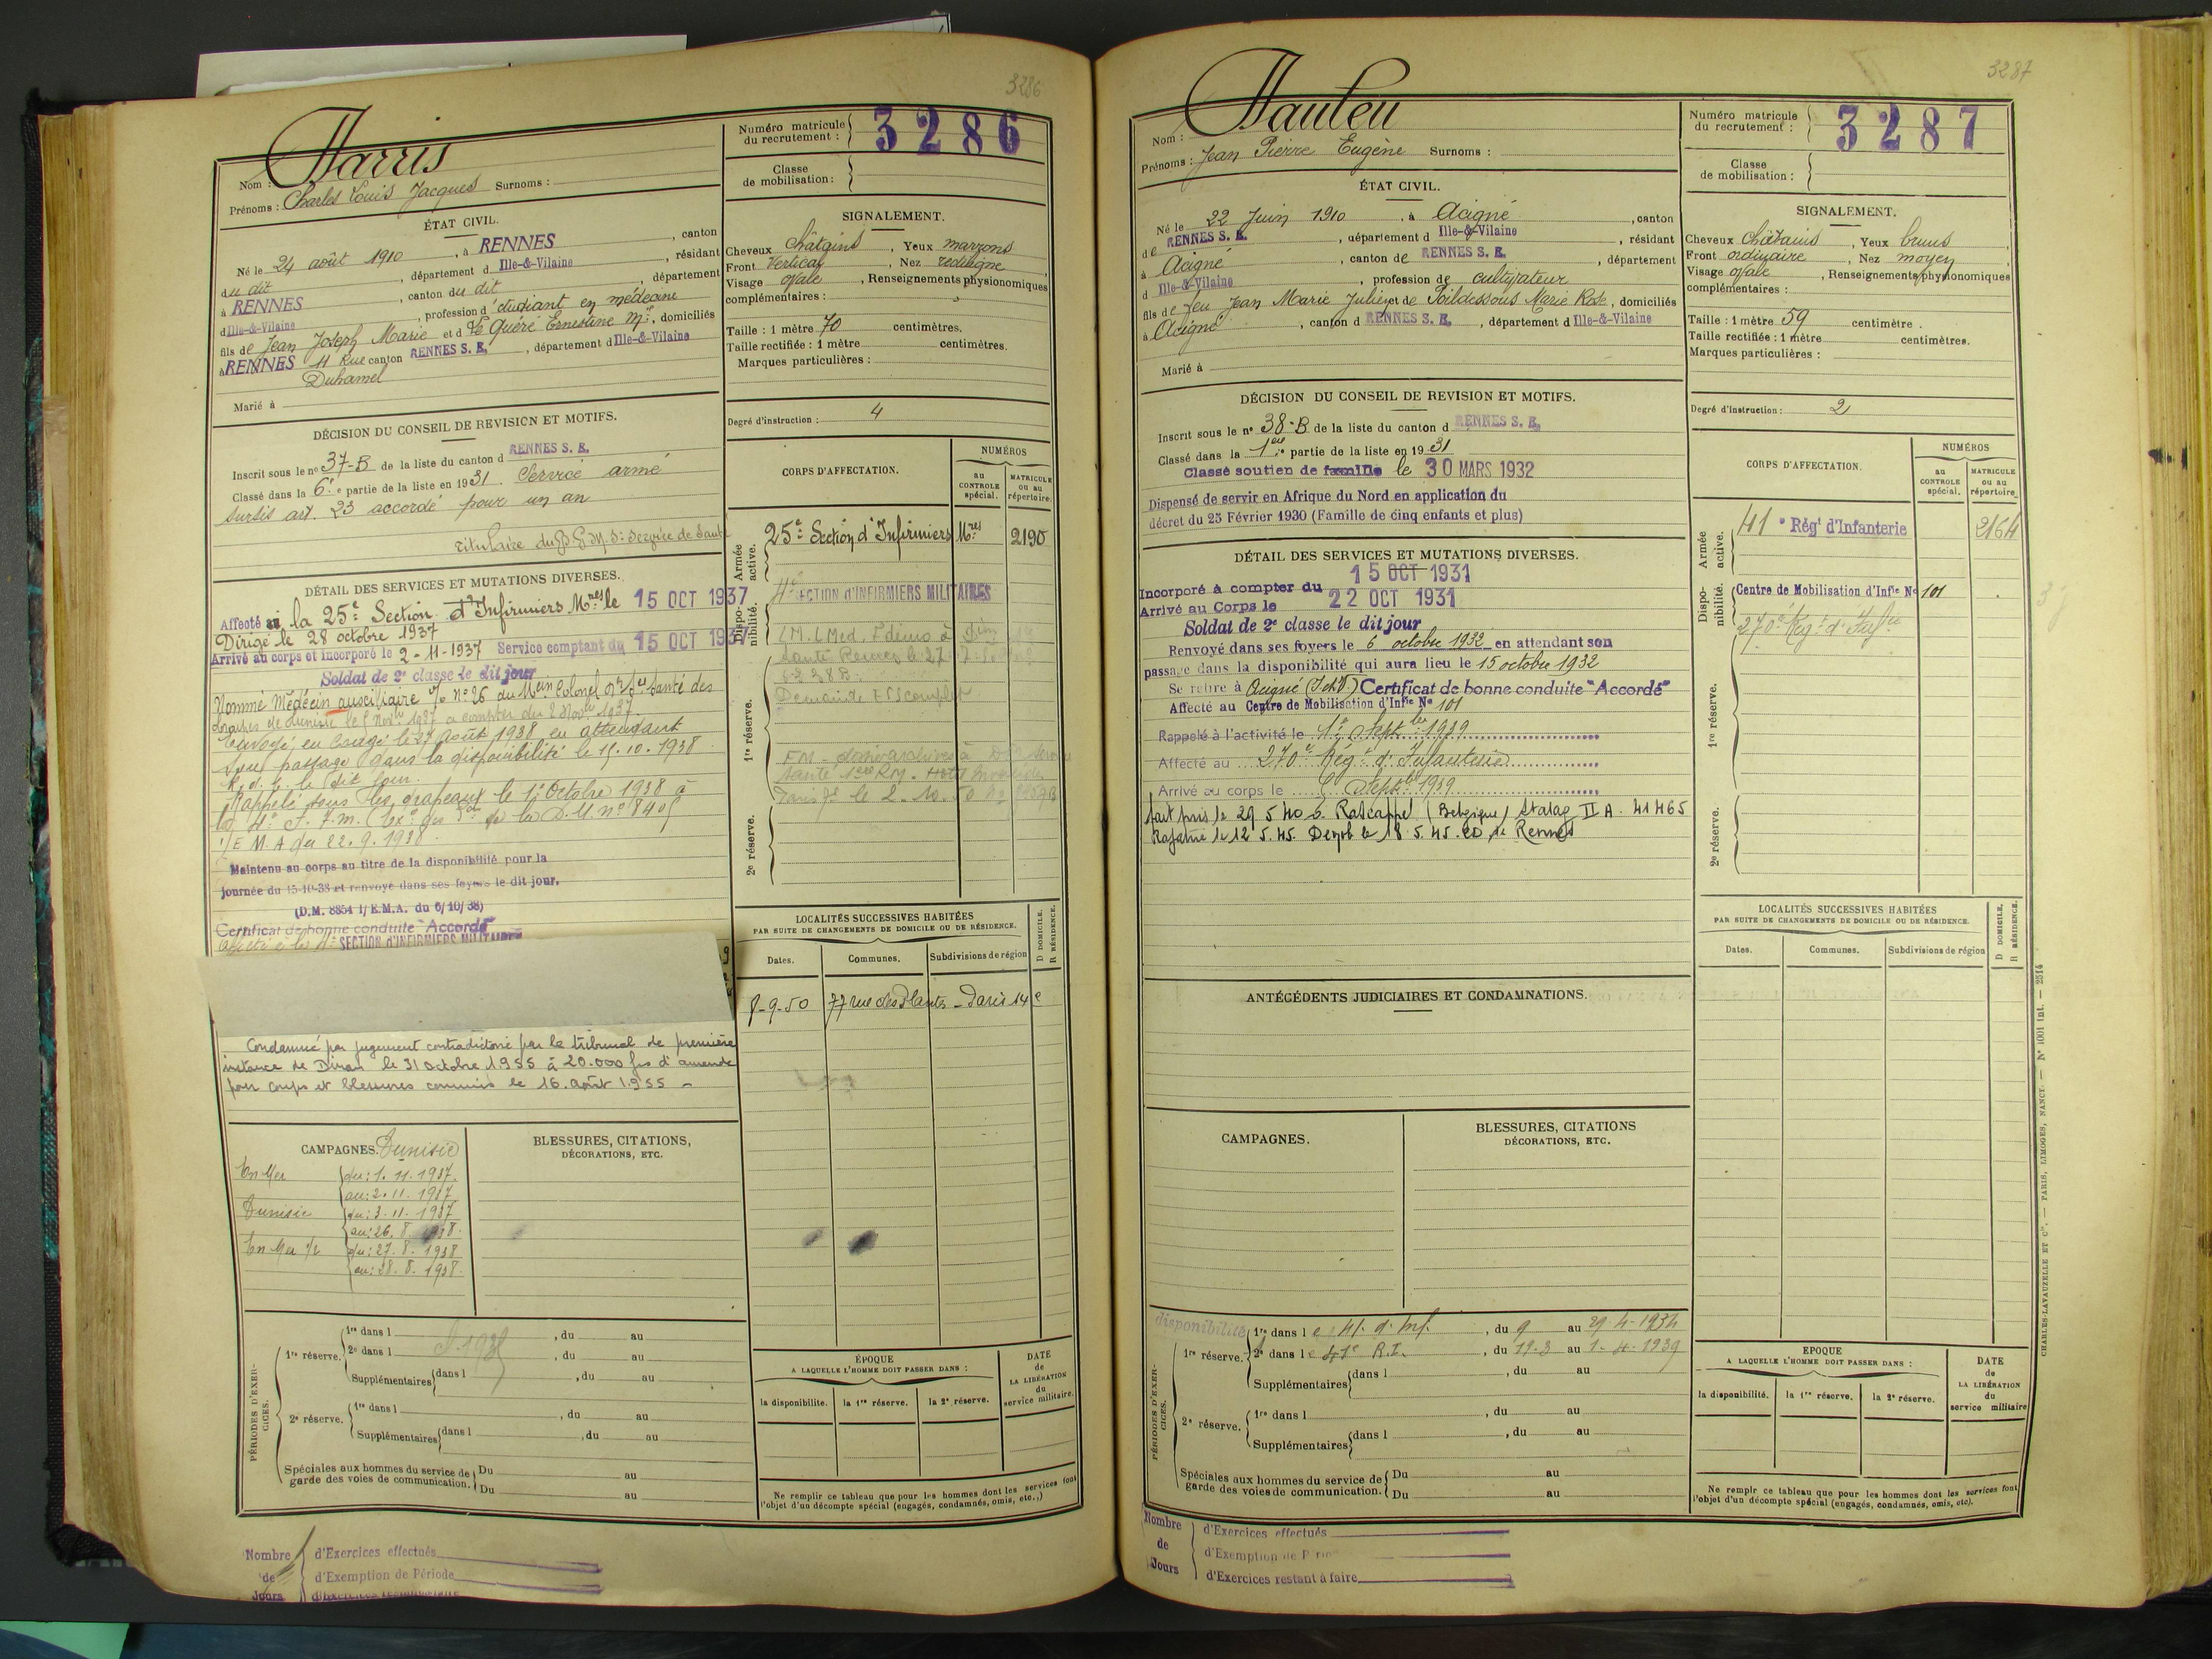 3286
Harris
Nom :
Prénoms : Charles Louis Jacques Surnoms :
Numéro matricule du recrutement : 3286
Classe de mobilisation :
ÉTAT CIVIL.
Né le 24 août 1910, à RENNES, canton
du dit, département d Ille-&-Vilaine, résidant
à RENNES, canton du dit, département
d Ille-&-Vilaine, profession d'étudiant en médecine
fils de Jean Joseph Marie et d Le Quéré Ernestine Mie, domiciliés
à RENNES 11 Rue canton RENNES S. E., département d Ille-&-Vilaine
Duhamel
Marié à
SIGNALEMENT.
Cheveux châtains, Yeux marrons
Front vertical, Nez rectiligne
Visage ovale, Renseignements physionomiques
complémentaires :
Taille : 1 mètre 70 centimètres.
Taille rectifiée : 1 mètre centimètres.
Marques particulières :
Degré d'instruction : 4
DÉCISION DU CONSEIL DE REVISION ET MOTIFS.
Inscrit sous le n° 37-B de la liste du canton d RENNES S. E.
Classé dans la 6e partie de la liste en 1931. Service armé
Sursis art. 23 accordé pour un an
titulaire du B P M S : Service de Santé
CORPS D'AFFECTATION.
NUMÉROS
au CONTROLE spécial.
MATRICULE ou au répertoire.
Armée active.
25e Section d'Infirmiers Mres 2190
Disponibilité.
4e SECTION D'INFIRMIERS MILITAIRES
1re réserve.
2e réserve.
DÉTAIL DES SERVICES ET MUTATIONS DIVERSES.
Affecté à la 25e Section d'Infirmiers Mres le 15 OCT 1937
Dirigé le 28 octobre 1937
Arrivé au corps et incorporé le 2-11-1937 Service comptant du 15 OCT 1937
Soldat de 2e classe le dit jour
Nommé Médecin auxiliaire n° 26 du Mein Colonel Santé des
troupes de Tunisie le 1 Novre 1937 a compter du 2 Novre 1937
Envoyé en congé le 27 août 1938 en attendant
son passage dans la disponibilité le 15.10.1938
R. d. C. le dit jour.
Rappelé sous les drapeaux le 1er Octobre 1938 à
la 4e S. I. M. de la D.M. n° 8405
1/E M. A du 22.9.1938
Maintenu au corps au titre de la disponibilité pour la
journée du 15-10-38 et renvoyé dans ses foyers le dit jour.
(D.M. 8854 1/E.M.A. du 6/10/38)
Certificat de bonne conduite "Accordé"
Affecté à la 4e SECTION D'INFIRMIERS MILITAIRES
Condamné par jugement contradictoire par le tribunal de première
instance de Dinan le 31 Octobre 1955 à 20.000 frs d'amende
pour coups et blessures commis le 16 août 1955 -
LOCALITÉS SUCCESSIVES HABITÉES
PAR SUITE DE CHANGEMENTS DE DOMICILE OU DE RÉSIDENCE.
D DOMICILE. R RÉSIDENCE.
Dates. Communes. Subdivisions de région
8-9-50 77 rue des Plantes - Paris 14e
CAMPAGNES. Tunisie
En Mer du : 1.11.1937
au : 2.11.1937
Tunisie du : 3.11.1937
au : 26.8.1938.
En Mer du : 27.8.1938
au : 28.8.1938.
BLESSURES, CITATIONS,
DÉCORATIONS, ETC.
PÉRIODES D'EXERCICES.
1re réserve.
1re dans l , du au
2e dans l , du au
Supplémentaires dans l , du au
2e réserve.
1re dans l , du au
Supplémentaires dans l , du au
Spéciales aux hommes du service de garde des voies de communication.
Du au
Du au
ÉPOQUE
A LAQUELLE L'HOMME DOIT PASSER DANS :
la disponibilité. la 1re réserve. la 2e réserve.
DATE de LA LIBÉRATION du service militaire.
Ne remplir ce tableau que pour les hommes dont les services font
l'objet d'un décompte spécial (engagés, condamnés, omis, etc.,)
Nombre de Jours
d'Exercices effectués
d'Exemption de Période
3287
Hauleu
Nom :
Prénoms : Jean Pierre Eugène Surnoms :
Numéro matricule du recrutement : 3287
Classe de mobilisation :
ÉTAT CIVIL.
Né le 22 Juin 1910, à Acigné, canton
de RENNES S. E., département d Ille-&-Vilaine, résidant
à Acigné, canton de RENNES S. E., département
d Ille-&-Vilaine, profession de cultivateur
fils de feu Jean Marie Julien et de Poildessous Marie Rose, domiciliés
à Acigné, canton d RENNES S. E., département d Ille-&-Vilaine
Marié à
SIGNALEMENT.
Cheveux châtains, Yeux bruns
Front ordinaire, Nez moyen
Visage ovale, Renseignements physionomiques
complémentaires :
Taille : 1 mètre 59 centimètre.
Taille rectifiée : 1 mètre centimètres.
Marques particulières :
Degré d'instruction : 2
DÉCISION DU CONSEIL DE REVISION ET MOTIFS.
Inscrit sous le n° 38-B de la liste du canton d RENNES S. E.
Classé dans la 1ère partie de la liste en 1931
Classé soutien de famille le 30 MARS 1932
Dispensé de servir en Afrique du Nord en application du
décret du 23 Février 1930 (Famille de cinq enfants et plus)
CORPS D'AFFECTATION.
NUMÉROS
au CONTROLE spécial.
MATRICULE ou au répertoire.
Armée active.
41e Régt d'Infanterie 2164
Disponibilité.
Centre de Mobilisation d'Infie N° 101
270e Régt d'Infie
1re réserve.
2e réserve.
DÉTAIL DES SERVICES ET MUTATIONS DIVERSES.
Incorporé à compter du 15 OCT 1931
Arrivé au Corps le 22 OCT 1931
Soldat de 2e classe le dit jour
Renvoyé dans ses foyers le 6 octobre 1932 en attendant son
passage dans la disponibilité qui aura lieu le 15 octobre 1932
Se retire à Acigné (I et V) Certificat de bonne conduite "Accordé"
Affecté au Centre de Mobilisation d'Infie N° 101
Rappelé à l'activité le 1er Septbre 1939
Affecté au 270e Régt d'Infanterie
Arrivé au corps le Septbre 1939
fait pris le 29.5.40 à Rascappel (Belgique) Stalag II A. 41465
Rapatrié le 12.5.45. Démob le 18.5.45. CD de Rennes
LOCALITÉS SUCCESSIVES HABITÉES
PAR SUITE DE CHANGEMENTS DE DOMICILE OU DE RÉSIDENCE.
D DOMICILE. R RÉSIDENCE.
Dates. Communes. Subdivisions de région
ANTÉCÉDENTS JUDICIAIRES ET CONDAMNATIONS.
CAMPAGNES.
BLESSURES, CITATIONS
DÉCORATIONS, ETC.
PÉRIODES D'EXERCICES.
disponibilité
1re réserve.
1re dans le 41. d'Inf., du 9 au 29-4-1934
2e dans le 41e R.I., du 11-3 au 1-4-1939
Supplémentaires dans l , du au
2e réserve.
1re dans l , du au
Supplémentaires dans l , du au
Spéciales aux hommes du service de garde des voies de communication.
Du au
Du au
EPOQUE
A LAQUELLE L'HOMME DOIT PASSER DANS :
la disponibilité. la 1re réserve. la 2e réserve.
DATE de LA LIBÉRATION du service militaire
Ne remplir ce tableau que pour les hommes dont les services font
l'objet d'un décompte spécial (engagés, condamnés, omis, etc).
CHARLES-LAVAUZELLE ET Cie. — PARIS, LIMOGES, NANCY. — N° 1001 int. — 2514
Nombre de Jours
d'Exercices effectués
d'Exemption de P
d'Exercices restant à faire